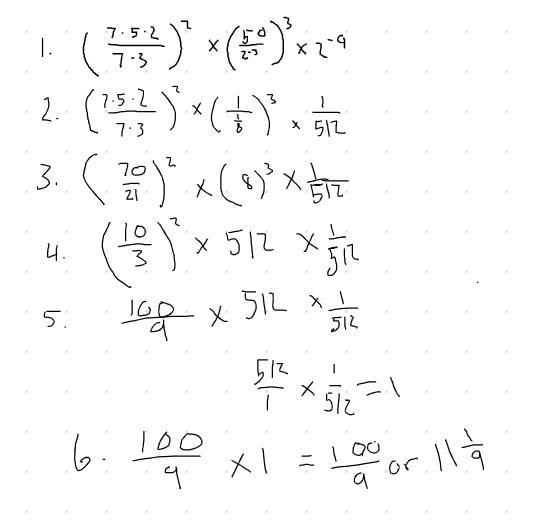 1. (7·5·2/7·3)² × (5⁰/2⁻³)³ × 2⁻⁹
2. (7·5·2/7·3)² × (1/(1/8))³ × 1/512
3. (70/21)² × (8)³ × 1/512
4. (10/3)² × 512 × 1/512
5. 100/9 × 512 × 1/512
512/1 × 1/512 = 1
6. 100/9 × 1 = 100/9 or 11 1/9